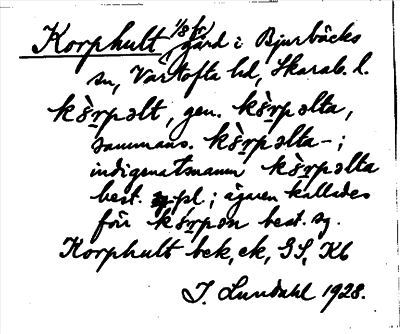 Korphult, 1/8 kr, gård i Bjurbäcks
sn, Vartofta hd, Skarab. l.
kòrpəlt, gen. kòrpəlta,
sammans. kòrpəlta-;
indigenatsnamn kòrpəlta
best. pl; ägaren kallades
för kórpən best. sg.
Korphult bek, ek, GS, Kb
J. Lundahl 1928.